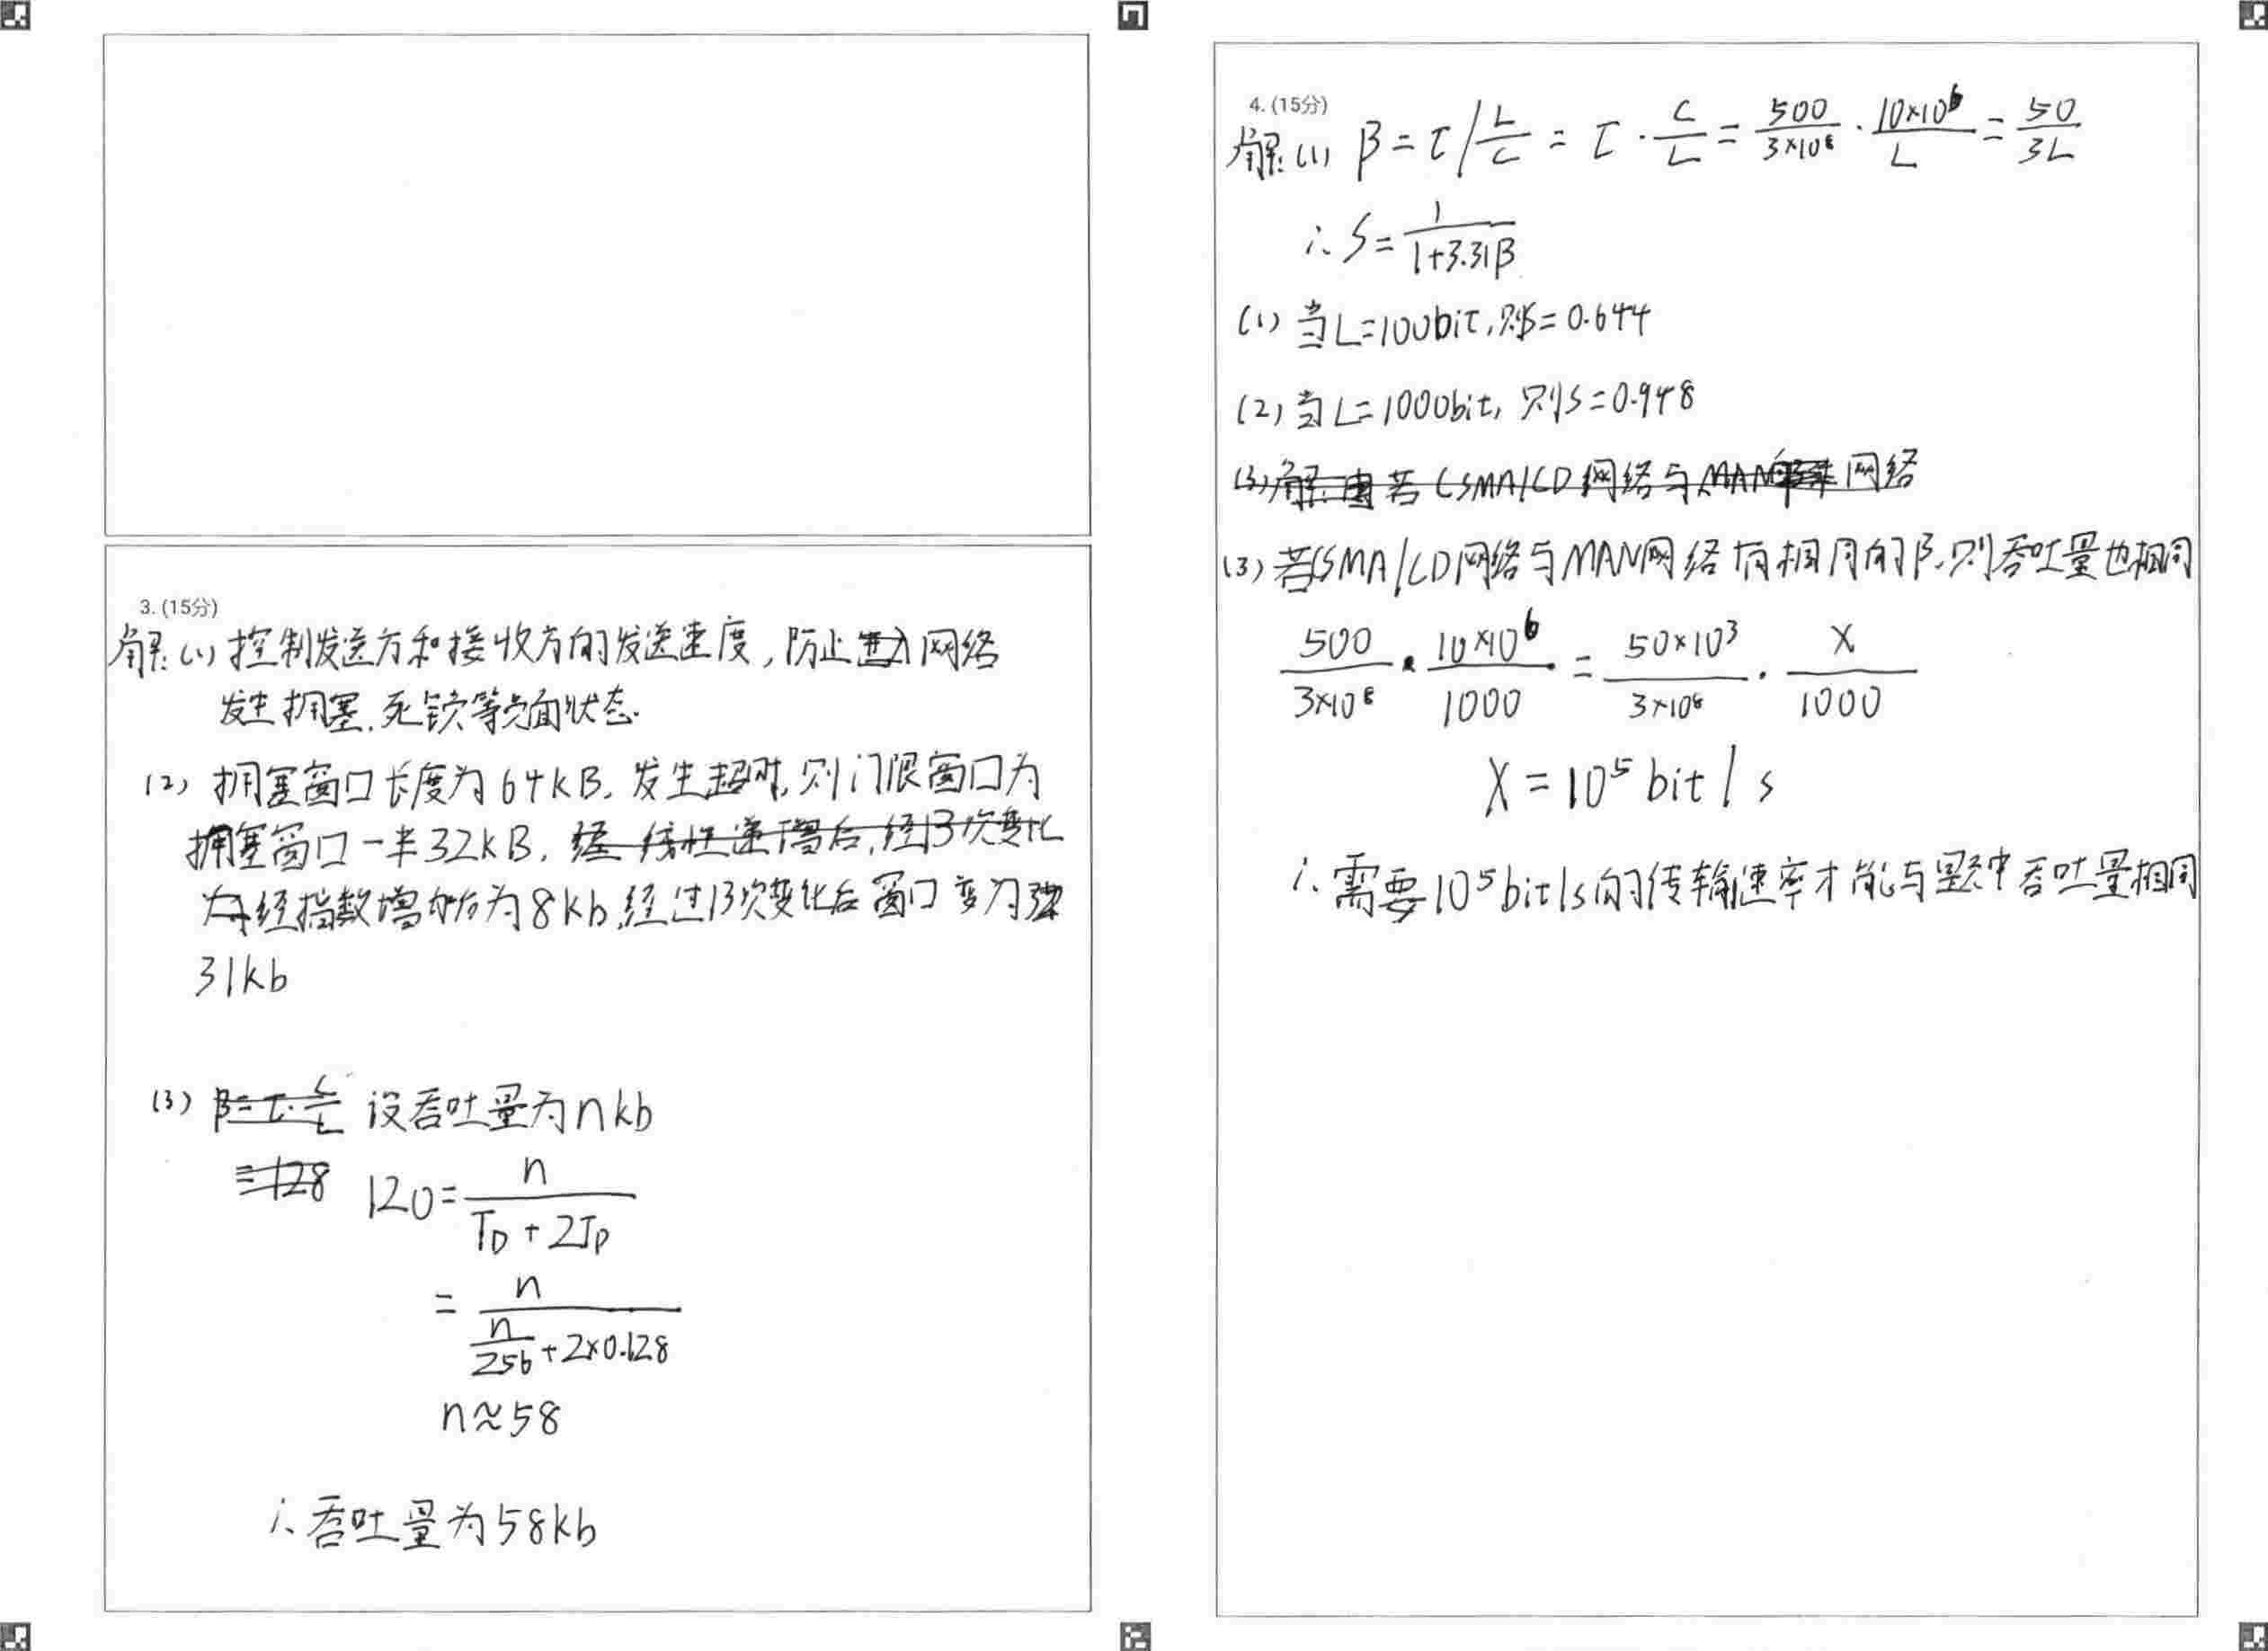 3. (15分)
解:(1) 控制发送方和接收方的发送速度,防止网络
发生拥塞,死锁等负面状态.
(2) 拥塞窗口长度为64kB,发生超时,则门限窗口为
拥塞窗口一半32kB,经线性递增后,经13次变化
为经指数增加后为8kb,经过13次变化后窗口变为
31kb
(3) β=τ·C/L 设吞吐量为nkb
=128 120= n/(TD + 2TP)
= n/(n/256 + 2×0.128)
n≈58
∴吞吐量为58kb
4. (15分)
解:(1) β=τ/(L/C) = τ·C/L = 500/(3×10⁸) · (10×10⁶)/L = 50/3L
∴ S= 1/(1+3.31β)
(1) 当L=100bit,则S=0.644
(2) 当L=1000bit, 则S=0.948
(3)解:由若CSMA/CD网络与MAN网络
(3) 若CSMA/CD网络与MAN网络有相同的β,则吞吐量也相同
500/(3×10⁸) · (10×10⁶)/1000 = (50×10³)/(3×10⁸) · X/1000
X=10⁵bit/s
∴需要10⁵bit/s的传输速率才能与题中吞吐量相同